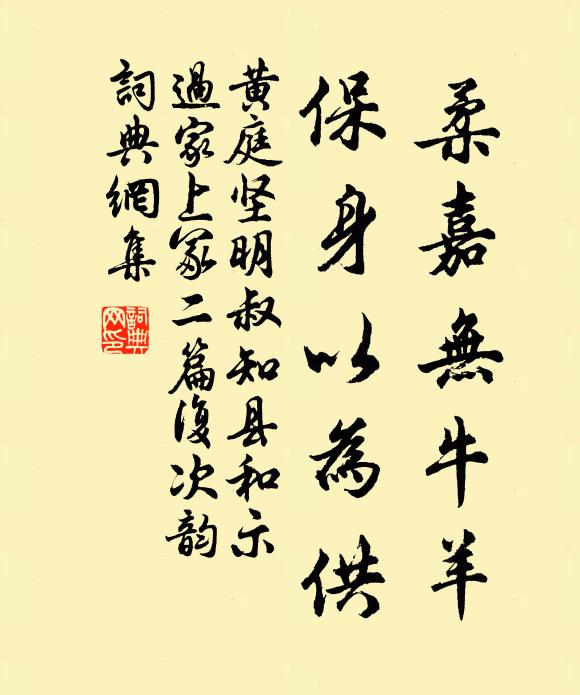 柔嘉無牛羊
保身以為供
黄庭坚明叔知县和示
過家上冢二篇復次韵
詞典網集
詞典
网印